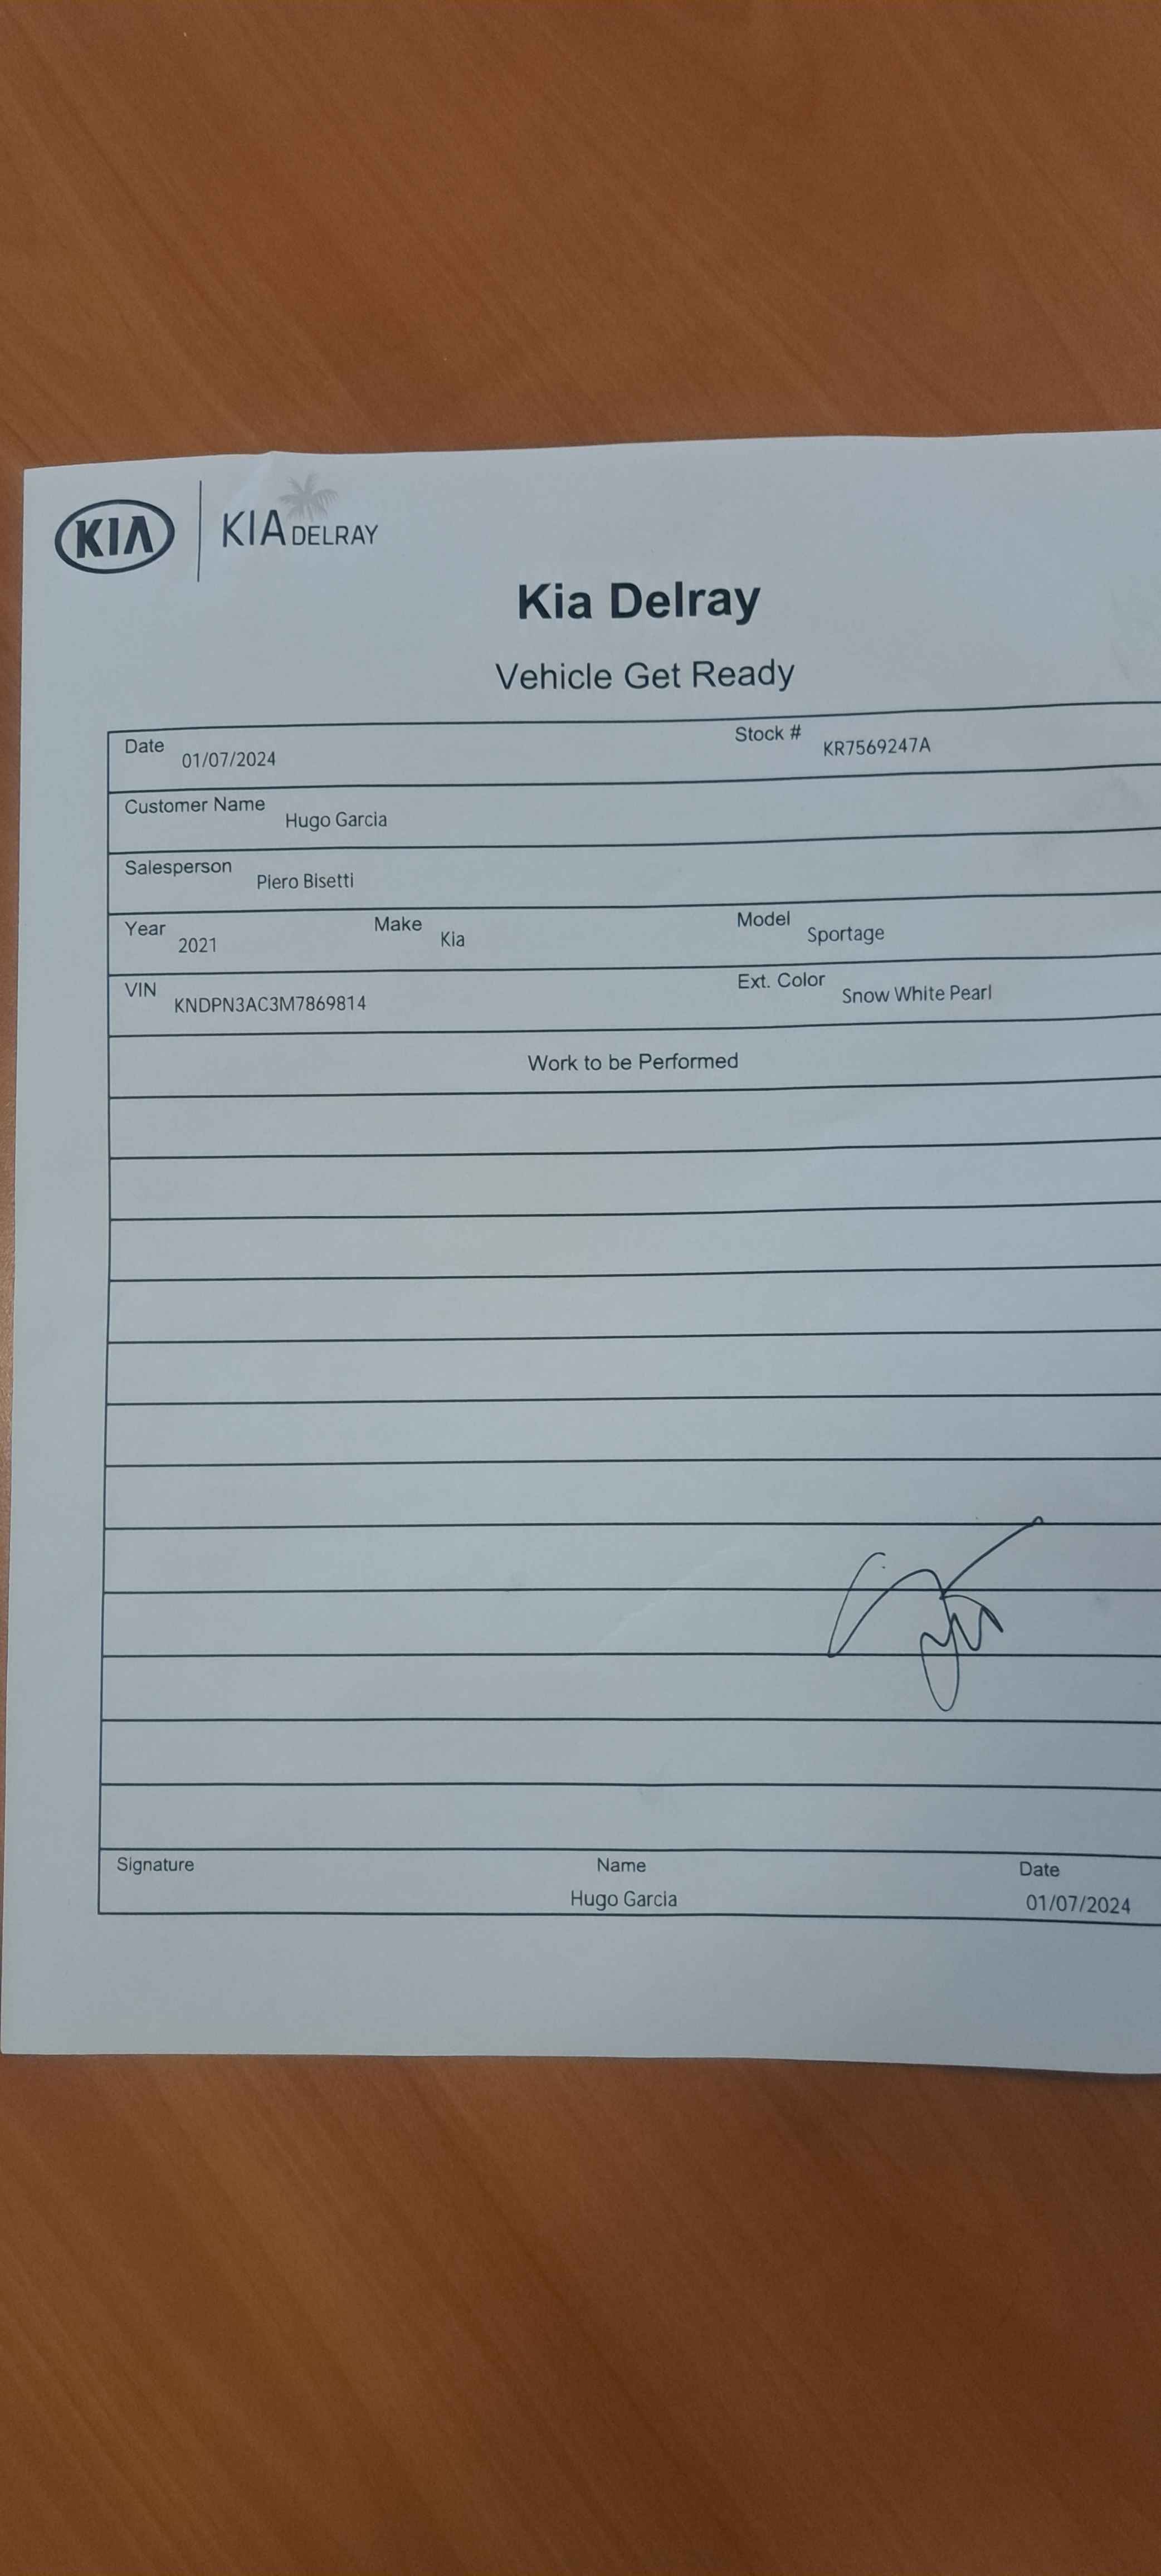 KIA KIA DELRAY
Kia Delray
Vehicle Get Ready
Date 01/07/2024 Stock # KR7569247A
Customer Name Hugo Garcia
Salesperson Piero Bisetti
Year 2021 Make Kia Model Sportage
VIN KNDPN3AC3M7869814 Ext. Color Snow White Pearl
Work to be Performed
Signature Name Date
Hugo Garcia 01/07/2024